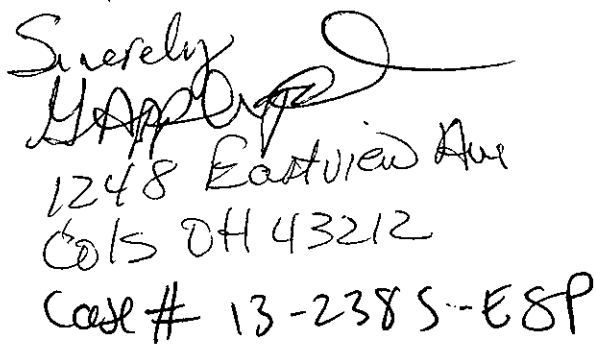 Sincerely
1248 Eastview Ave
Cols OH 43212
Case # 13-2385-ESP